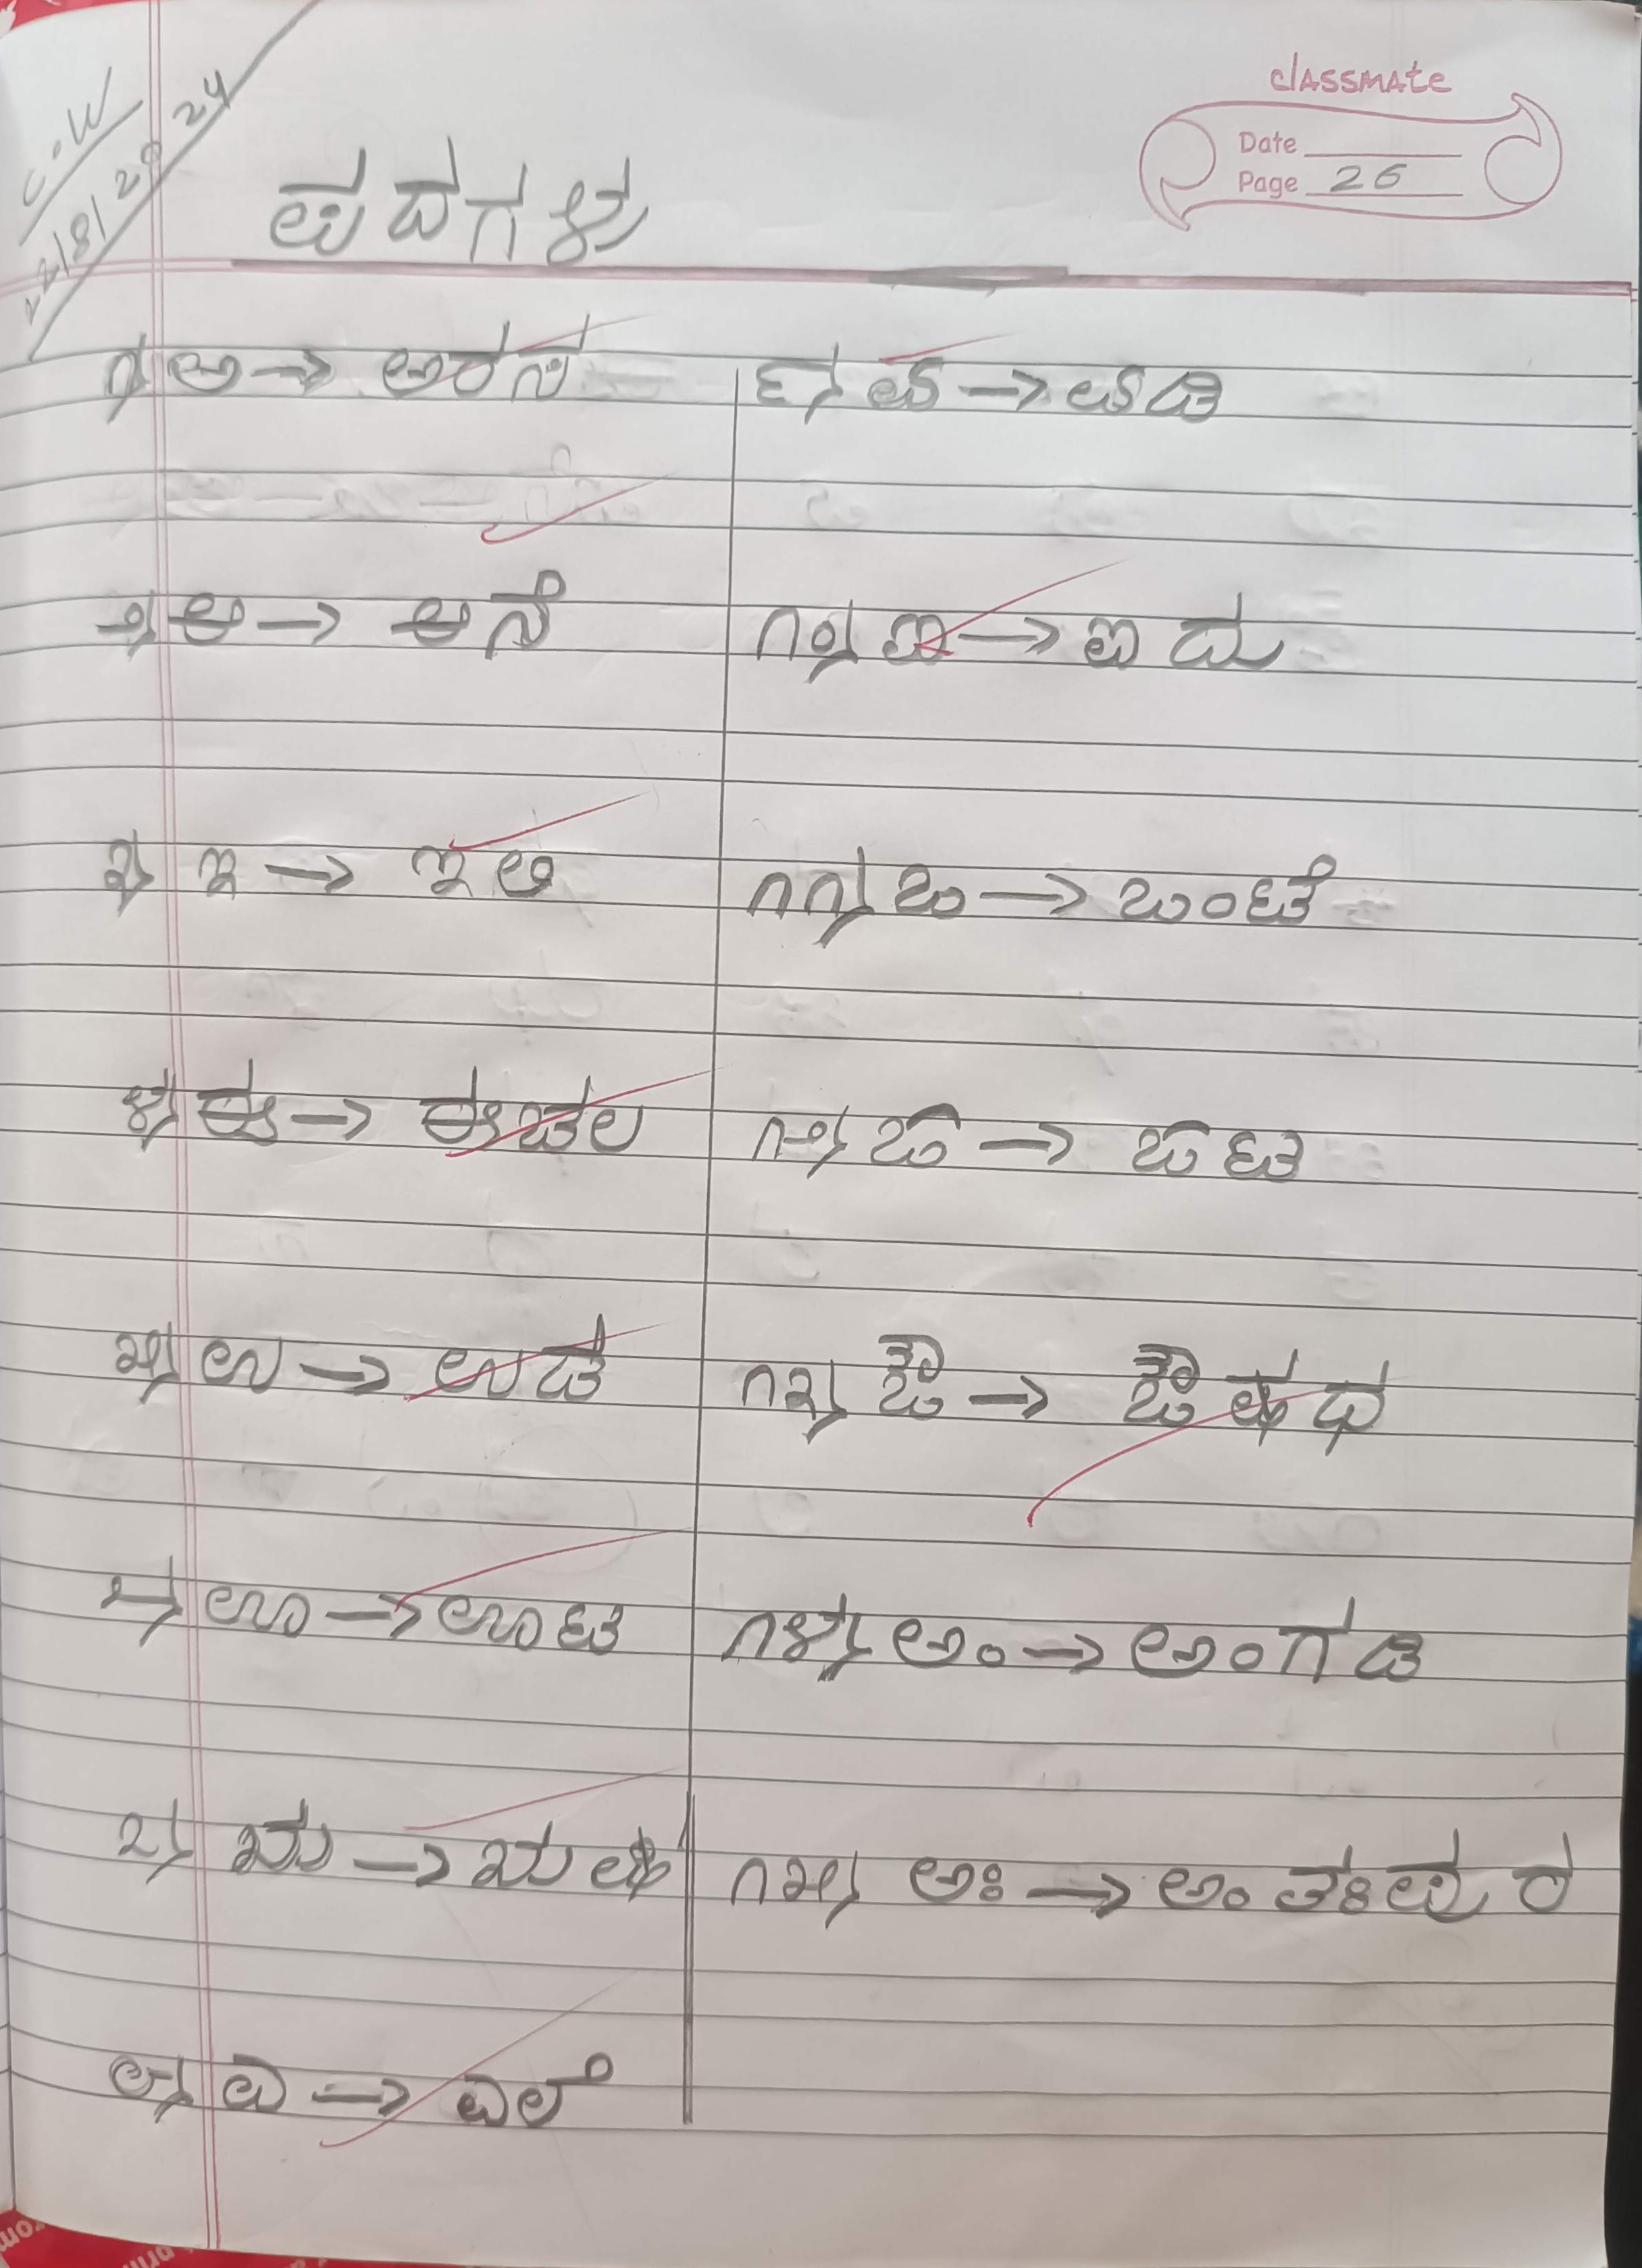 C.W
22/8/2024
classmate
Date
Page 26
ಪದಗಳು
೧) ಅ → ಅರಸ
೨) ಆ → ಆನೆ
೩) ಇ → ಇಲಿ
೪) ಈ → ಈಚಲ
೫) ಉ → ಉಡ
೬) ಊ → ಊಟ
೭) ಋ → ಋಷಿ
೮) ಎ → ಎಲೆ
೯) ಏ → ಏಡಿ
೧೦) ಐ → ಐದು
೧೧) ಒ → ಒಂಟೆ
೧೨) ಓ → ಓಟ
೧೩) ಔ → ಔಷಧ
೧೪) ಅಂ → ಅಂಗಡಿ
೧೫) ಅಃ → ಅಂತಃಪುರ